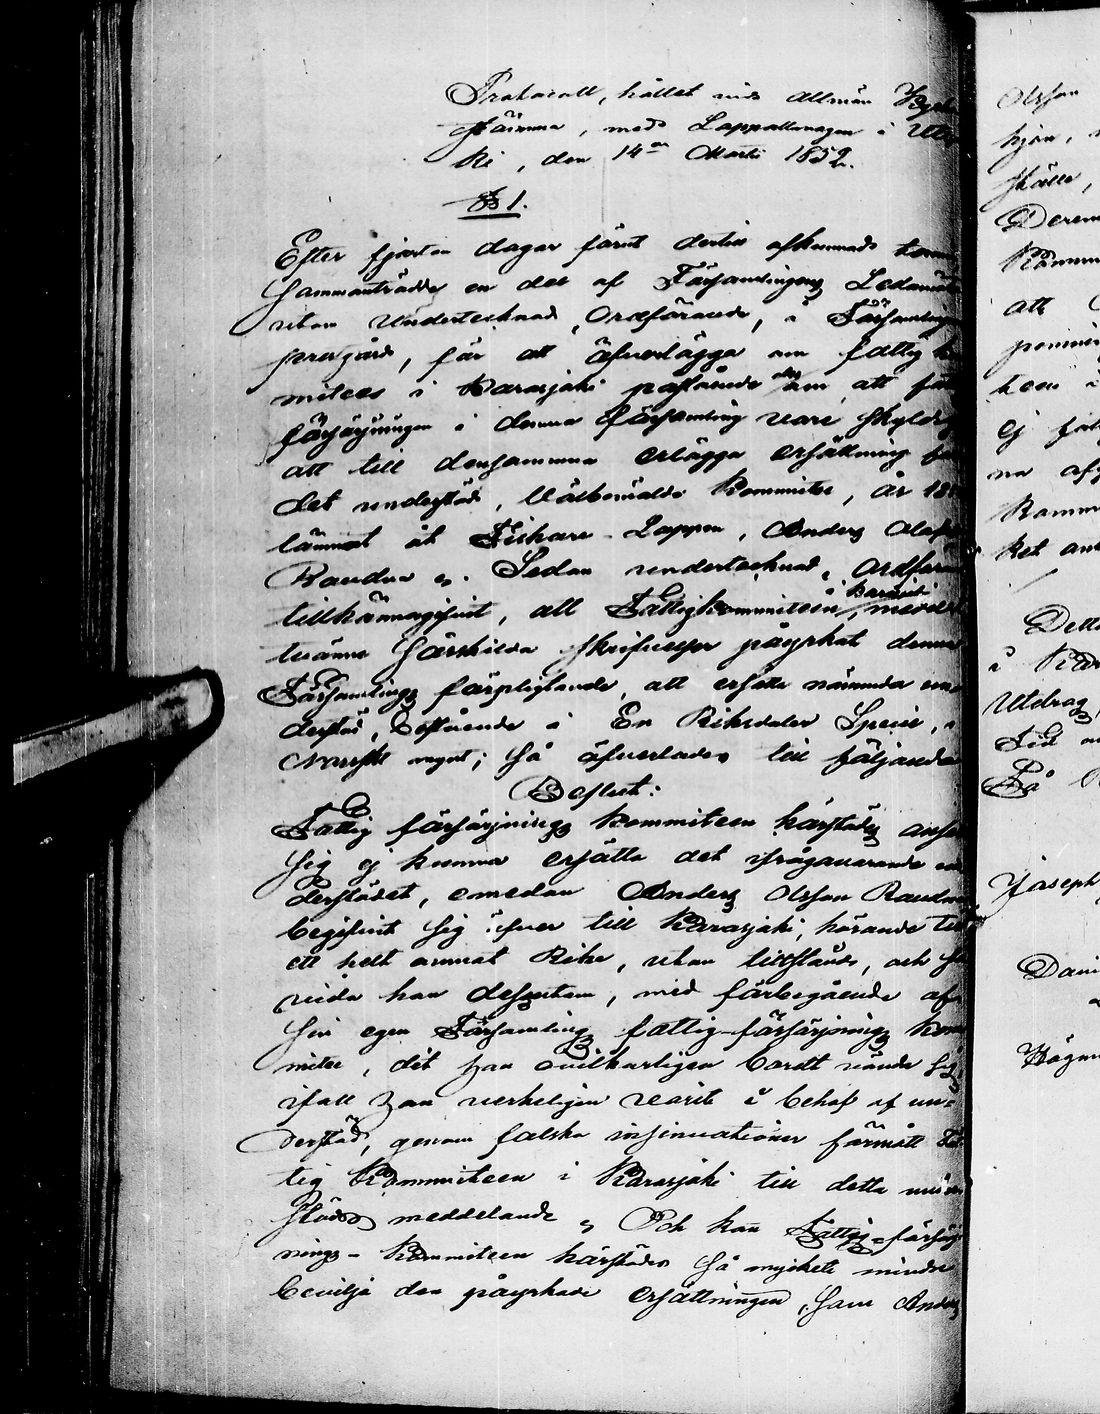 Protocoll, hållet vid Allmän Kyrko
stämma, med Lappallmogen i Uts
ki, den 14de Martii 1852.
§ 1.
Efter fjorton dagar förut dertill afkunnade
Sammanträdde en del af Församlingens Ledamöte
utom undertecknad, Ordförande, i Församlings
prestgård, för att öfverlägga om fattig k
mitees i Karasjoki påstående om, att fat
försörjningen i denna församling vore skyldig
att till densamma erlägga ersättning för
det understöd, Välbemälde Kommitee, år 18
lämnat åt Fiskare-Lappen, Anders Olofs
Raudna. Sedan undertecknad, Ordföran
tillkännagifvit, att Fattigkommiteen i Karasjoki, medelst
tvänne särskilda skrifvelser påyrkat denna
Församlings förpligtande, att ersätta nämnda un
derstöd, bestående i En Riksdaler Specie, i
Norskt mynt; så öfverlades till följande
Beslut:
Fattig försörjnings kommiteen härstädes anser
sig ej kunna ersätta det ifrågavarande un
derstödet, emedan Anders Olsson Raudna
begifvit sig öfver till Karasjoki, hörande till
ett helt annat Rike, utan tillstånd, och
vida han dessutom, med förbegående af
sin egen Församlings fattig-försörjnings kom
mitee, dit han ovilkorligen bordt vända sig
ifall han verkeligen varit i behof af un-
derstöd, genom falska insinuationer förmått Fat
tig Kommiteen i Karasjoki till detta
stöds meddelande. Och kan Fattig-försörj
nings-Kommiteen härstädes så mycket mindre
bevilja den påyrkade ersättningen, som Anders
Olsson
hjon,
ställe,
Derem
Kommu
att
penning
teen i
ej
na af
Kommi
ket an
Detta
i Kar
Utdrag,
Tid
På
Joseph
Dani
Högm